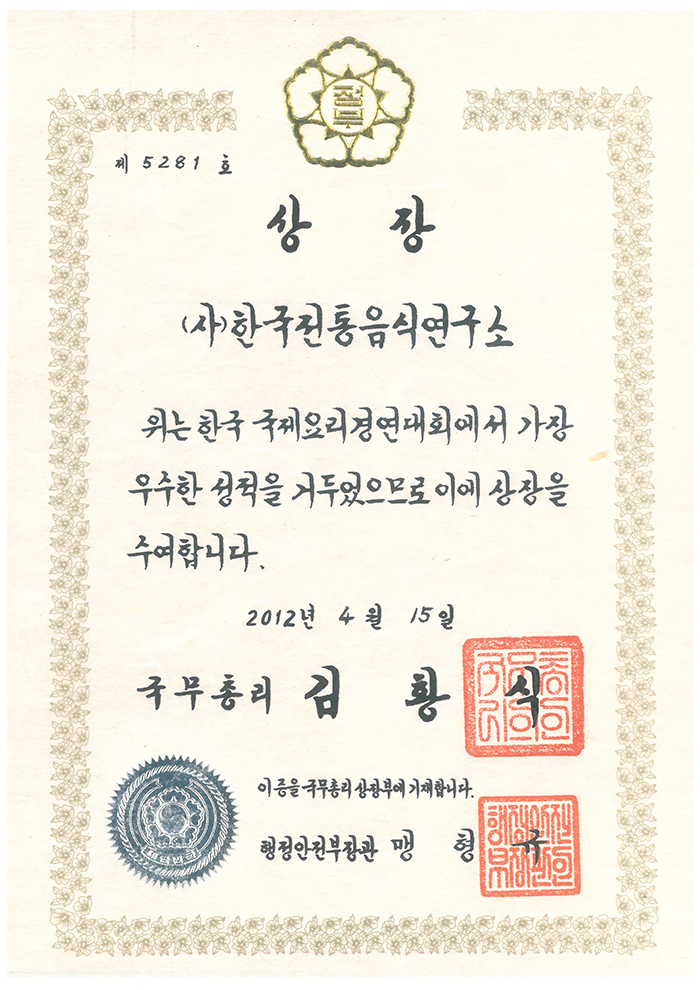 제 5281 호
상 장
(사)한국전통음식연구소
위는 한국 국제요리경연대회에서 가장
우수한 성적을 거두었으므로 이에 상장을
수여합니다.
2012년 4월 15일
국무총리 김 황 식
이 증을 국무총리 상장부에 기재합니다.
행정안전부장관 맹 형 규